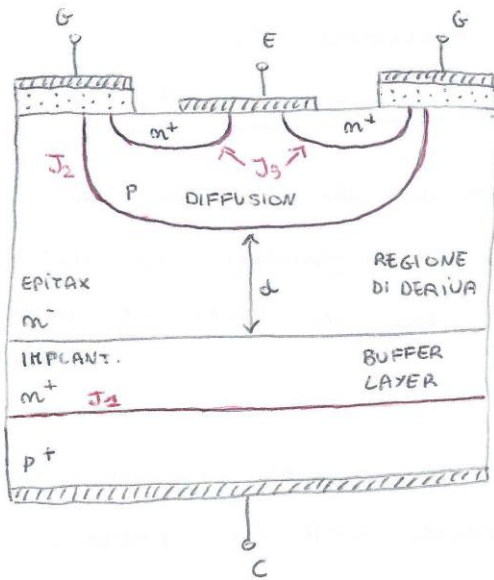 G
E
G
n+
n+
J2
J3
P
DIFFUSION
EPITAX
n-
d
REGIONE
DI DERIVA
IMPLANT.
n+
J1
BUFFER
LAYER
P+
C